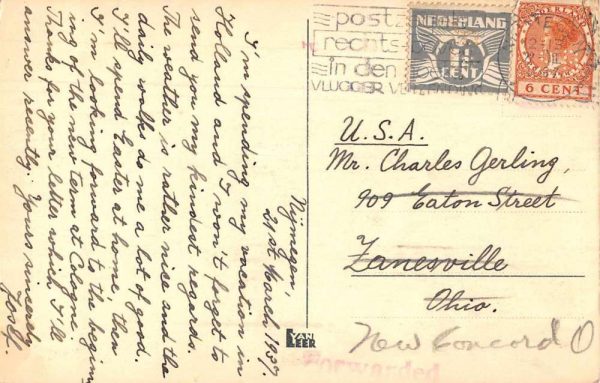 Nijmegen,
21st March 1937.
I'm spending my vacation in
Holland and I won't forget to
send you my kindest regards.
The weather is rather nice and the
daily walks do me a lot of good.
I'll spend Easter at home, then
I'm looking forward to the beginn-
ing of the new term at Cologne.
Thanks for your letter which I'll
answer recently. Yours sincerely
postz
rechts
in den
VLUGGER VERZENDING
NEDERLAND
CENT
NEDERLAND
6 CENT
U.S.A.
Mr. Charles Gerling,
909 Eaton Street
Zanesville
Ohio.
New Concord O
Forwarded
VAN
LEER